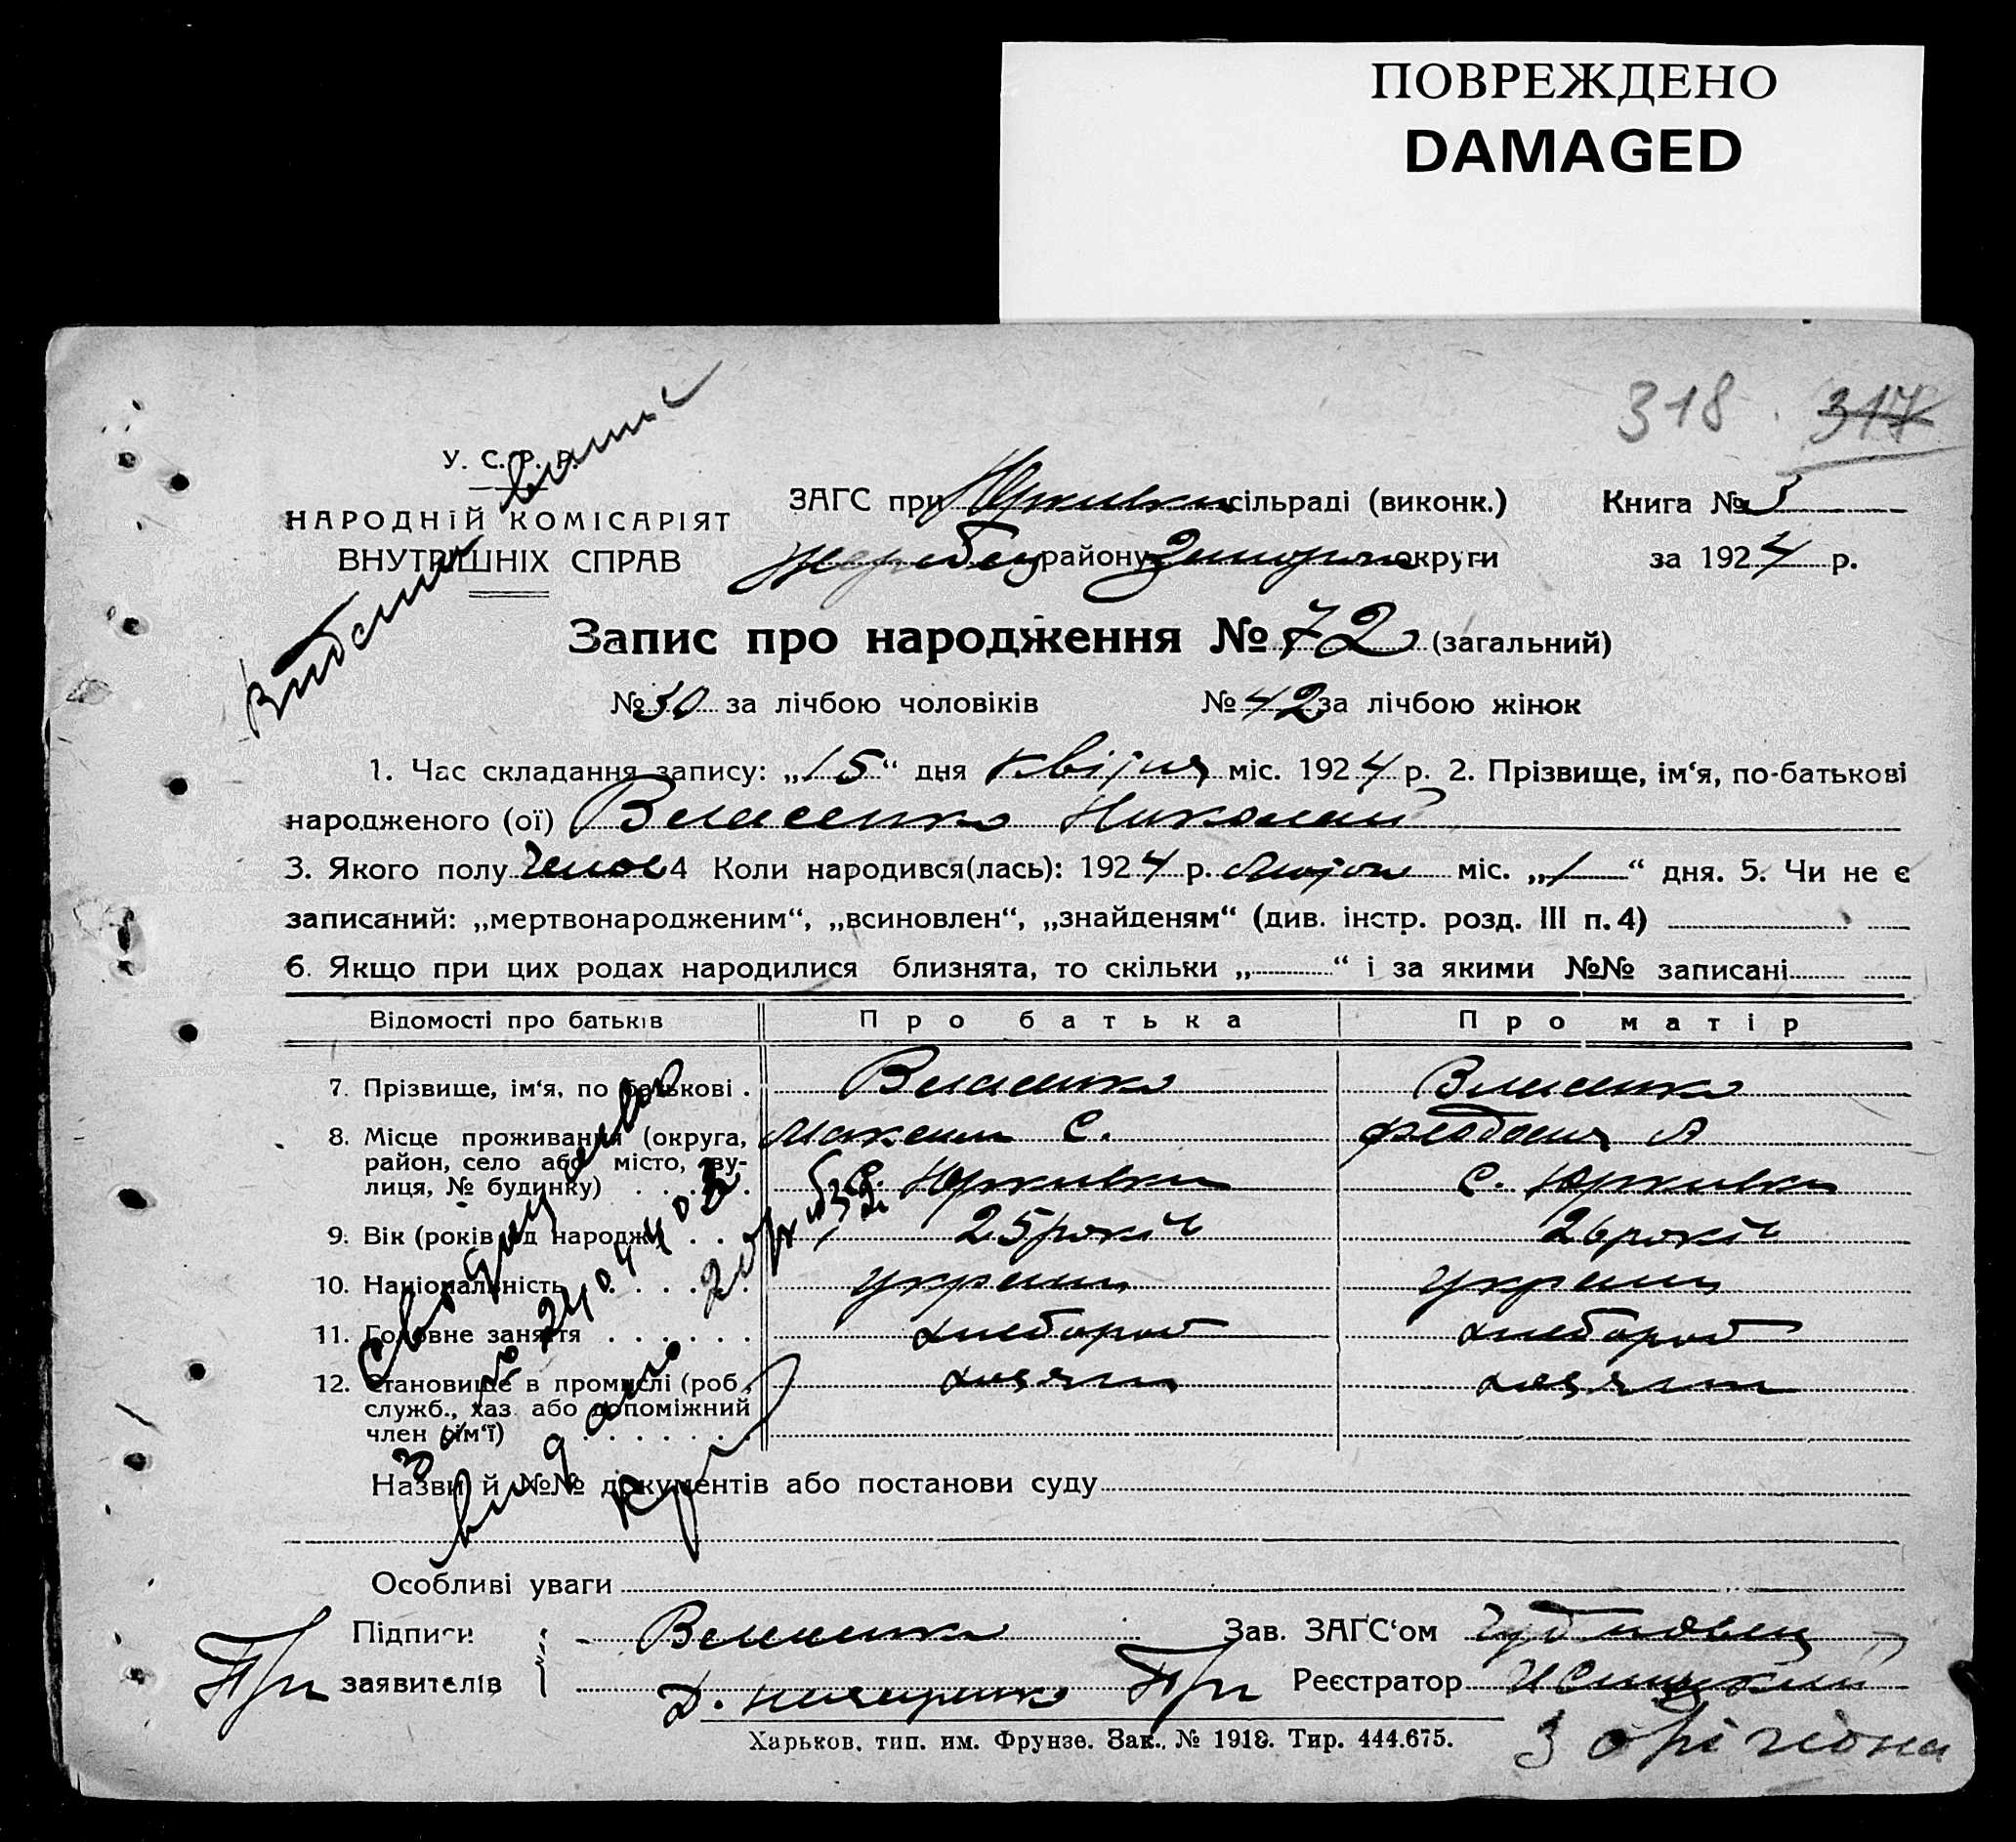 ПОВРЕЖДЕНО
DAMAGED
318 . 317
У. С. Р. Р.
НАРОДНІЙ КОМІСАРІЯТ
ВНУТРІШНІХ СПРАВ
ЗАГС при Юрківки сільраді (виконк.) Книга №
Жеребец району Запоріж округи за 1924 р.
Запис про народження № 72 (загальний)
№ 30 за лічбою чоловіків № 42 за лічбою жінок
1. Час складання запису: „15“ дня квітня міс. 1924 р. 2. Прізвище, ім‘я, по-батькові
народженого (ої) Власенко Николай
3. Якого полу чолов 4 Коли народився(лась): 1924 р. міс. „1“ дня. 5. Чи не є
записаний: „мертвонародженим“, „всиновлен“, „знайденям“ (див. інстр. розд. III п. 4)
6. Якщо при цих родах народилися близнята, то скільки „ “ і за якими №№ записані
Відомості про батьків Про батька Про матір
7. Прізвище, ім‘я, по батькові . Власенко Власенко
8. Місце проживання (округа, Максим С. Феодосия А
район, село або місто, ву-
лиця, № будинку) . . . . . с. Юркивки с. Юркивки
9. Вік (років від народж.) . . . 25 років 26 років
10. Національність . . . . . . украин украин
11. Головне заняття . . . . . . хлебороб хлебороб
12. Становище в промислі (роб., хозяин хозяин
служб., хаз. або допоміжний
член сім‘ї) . . . . . . .
Назви й №№ документів або постанови суду
Особливі уваги
Підписи Власенко Зав. ЗАГС‘ом
заявителів Реєстратор
Харьков, тип. им. Фрунзе. Зак. № 1918. Тир. 444.675.